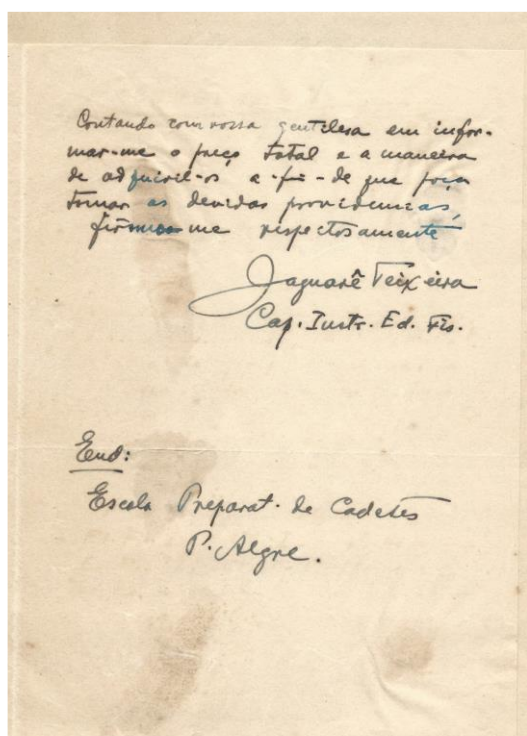 Contando com vossa gentilesa em infor-
mar-me o preço total e a maneira
de adquiril-os a-fi-de que possa
tomar as devidas providencias,
firmo-me respeitosamente
Jaguarê Teixeira
Cap. Instr. Ed. Fis.
End:
Escola Preparat. de Cadetes
P. Alegre.